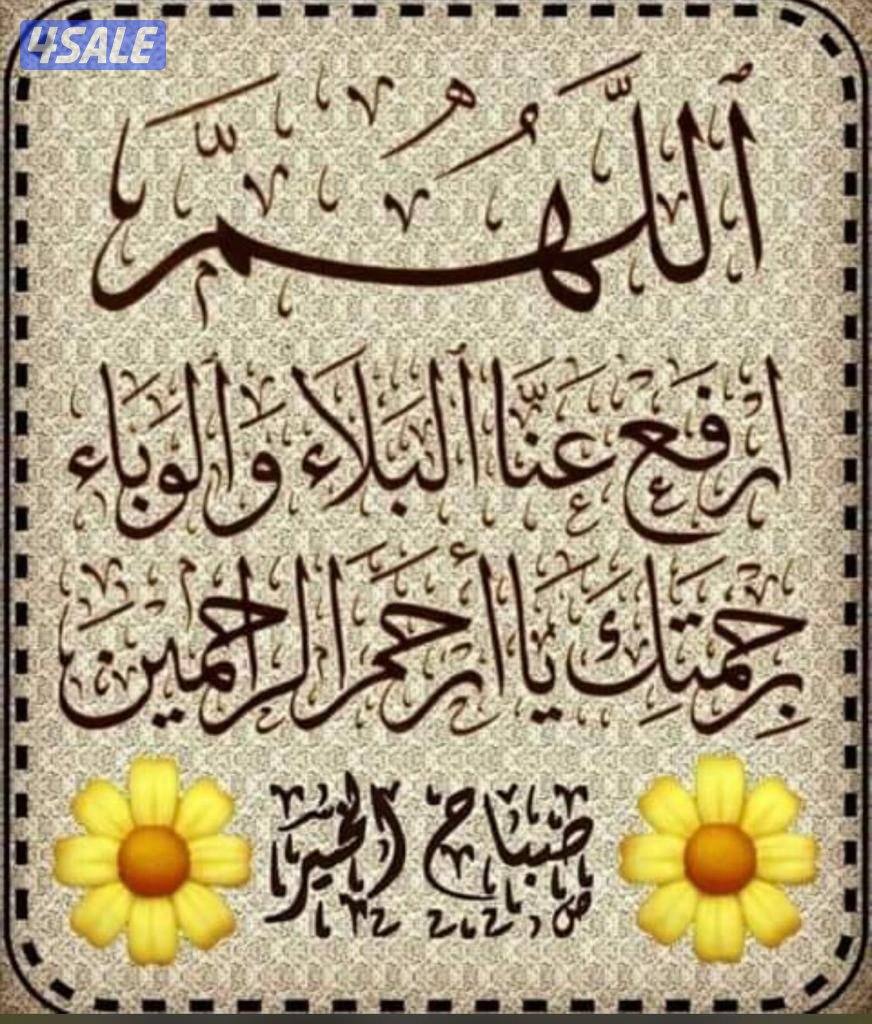 4SALE
اللَّهُمَّ
ارْفَعْ عَنَّا الْبَلَاءَ وَالْوَبَاءَ
بِرَحْمَتِكَ يَا أَرْحَمَ الرَّاحِمِينَ
صباح الخير